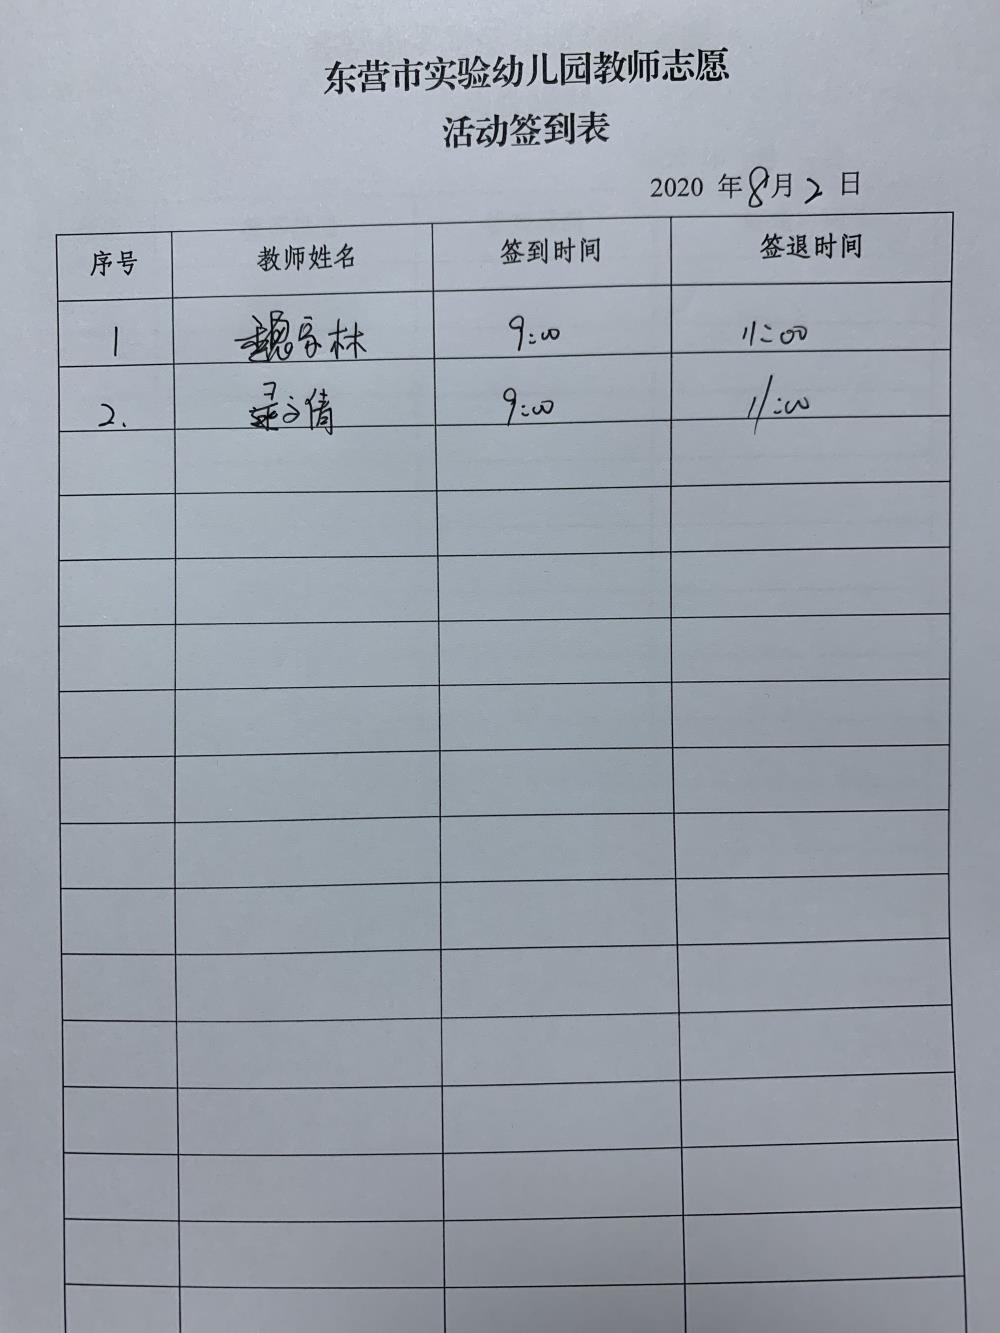 东营市实验幼儿园教师志愿
活动签到表
2020 年 8月 2 日
序号 教师姓名 签到时间 签退时间
1 魏家林 9:00 11:00
2. 文倩 9:00 11:00